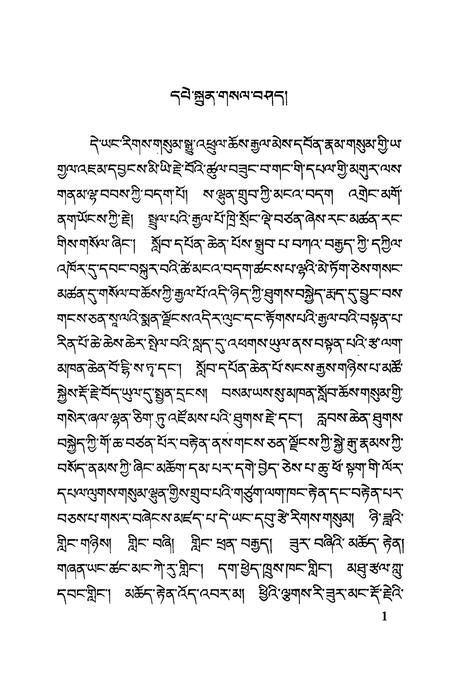 དཔེ་སྐྲུན་གསལ་བཤད།
དེ་ཡང་རིགས་གསུམ་སྒྱུ་འཕྲུལ་ཆོས་རྒྱལ་མེས་དབོན་རྣམ་གསུམ་གྱི་ཡ
གྱལ་འཇམ་དབྱངས་མི་ཡི་རྗེ་བོའི་ཚུལ་བཟུང་བ་གང་གི་དཔལ་གྱི་མགུར་ལས
གནམ་ལྷ་བབས་ཀྱི་བདག་པོ། ས་ལྷུན་གྲུབ་ཀྱི་མངའ་བདག འགྲེང་མགོ་
ནག་ཡོངས་ཀྱི་རྗེ། སྤྲུལ་པའི་རྒྱལ་པོ་ཁྲི་སྲོང་ལྡེ་བཙན་ཞེས་རང་མཚན་རང་
གིས་གསོལ་ཞིང་། སློབ་དཔོན་ཆེན་པོས་སྒྲུབ་པ་བཀའ་བརྒྱད་ཀྱི་དཀྱིལ་
འཁོར་དུ་དབང་བསྐུར་བའི་ཚེ་མངའ་བདག་ཚངས་པ་ལྷའི་མེ་ཏོག་ཅེས་གསང་
མཚན་དུ་གསོལ་བ་ཆོས་ཀྱི་རྒྱལ་པོ་འདི་ཉིད་ཀྱི་ཐུགས་བསྐྱེད་རྨད་དུ་བྱུང་བས
གངས་ཅན་སཱ་ལའི་སྨན་ལྗོངས་འདིར་ལུང་དང་རྟོགས་པའི་རྒྱལ་བའི་བསྟན་པ་
རིན་པོ་ཆེ་ཆེས་ཆེར་སྤེལ་བའི་སླད་དུ་འཕགས་ཡུལ་ནས་བསྟན་པའི་རྩ་ལག་
མཁན་ཆེན་བོ་དྷི་ས་ཏྭ་དང་། སློབ་དཔོན་ཆེན་པོ་སངས་རྒྱས་གཉིས་པ་མཚོ་
སྐྱེས་རྡོ་རྗེ་བོད་ཡུལ་དུ་སྤྱན་དྲངས། བསམ་ཡས་སུ་མཁན་སློབ་ཆོས་གསུམ་གྱི་
གསེར་ཞལ་ལྷན་ཅིག་ཏུ་འཛོམས་པའི་ཐུགས་རྗེ་དང་། རླབས་ཆེན་ཐུགས་
བསྐྱེད་ཀྱི་གོ་ཆ་བཙན་པོར་བརྟེན་ནས་གངས་ཅན་ལྗོངས་ཀྱི་སྐྱེ་རྒུ་རྣམས་ཀྱི་
བསོད་ནམས་ཀྱི་ཞིང་མཆོག་དམ་པར་དགེ་བྱེད་ཅེས་པ་ཆུ་ཕོ་སྟག་གི་ལོར་
དཔལ་ལུགས་གསུམ་ལྷུན་གྱིས་གྲུབ་པའི་གཙུག་ལག་ཁང་རྟེན་དང་བརྟེན་པར་
བཅས་པ་གསར་བཞེངས་མཛད་པ་དེ་ཡང་དབུ་རྩེ་རིགས་གསུམ། ཉི་ཟླའི་
གླིང་གཉིས། གླིང་བཞི། གླིང་ཕྲན་བརྒྱད། ཟུར་བཞིའི་མཆོད་རྟེན།
གཞན་ཡང་ཚང་མང་ཀེ་རུ་གླིང་། དག་ཕྱེད་ཁྲུས་ཁང་གླིང་། མཐུ་རྩལ་ཀླུ་
དབང་གླིང་། མཆོད་རྟེན་འོད་འབར་མ། ཕྱིའི་ལྕགས་རི་ཟུར་མང་རྡོ་རྗེའི་
1